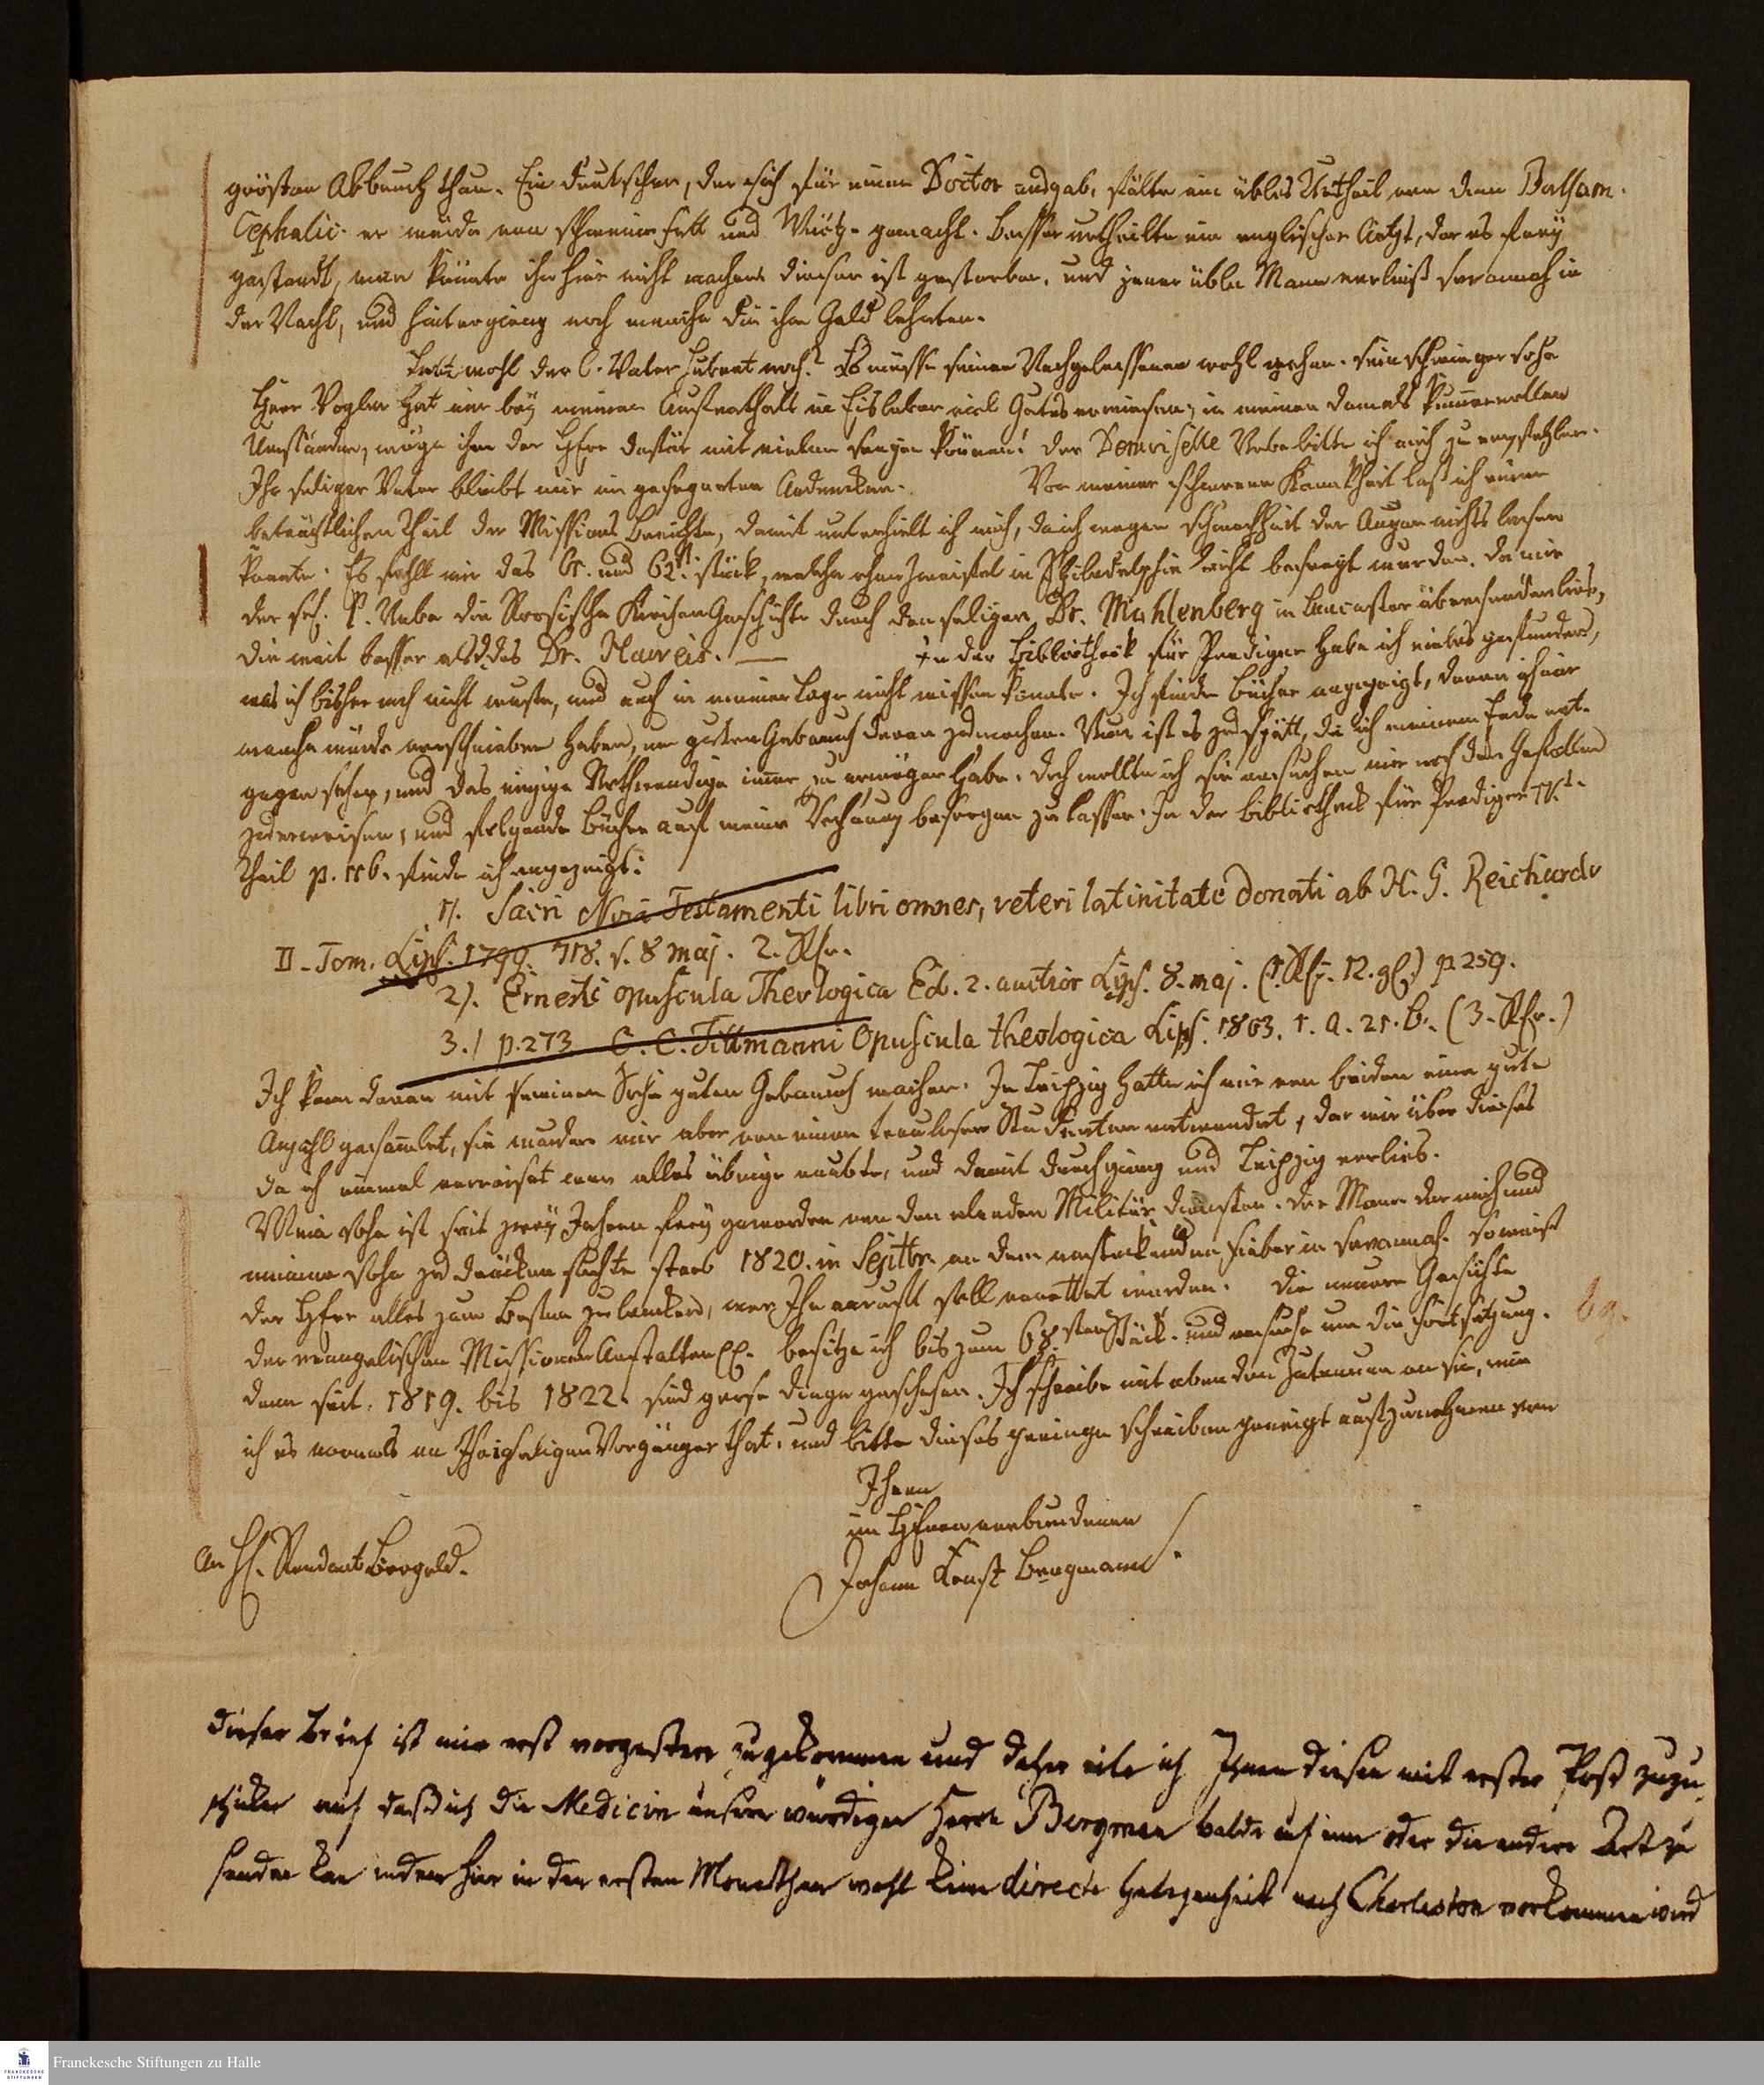 grösten Abbruch thun. Ein deutscher, der sich für einen Doctor ausgab, fälte ein übles Urtheil von dem Balsam.
Cephalic. er würde von schweine fett und Würtz. gemacht. besser urtheilte ein englischer Artzt, der es frey
gestandt, man könnte ihn hier nicht machen dieser ist gestorben, und jener üble Mann verließ Savannah in
der Nacht, und hintergieng noch manche die ihm Geld lehnten.
Lebt wohl der l. Vater noch? Es müsse seinen Nachgelassenen wohl gehen. Sein schwieger sohn
Herr Vogler hat mir bey meinem Auffenthalt in Eisleben viel Gutes erwiesen, in meinen damals kummervollen
Umständen, möge ihm der HErr dafür mit vielem seegen krönen! Der Demoiselle Nebe bitte ich mich zu empfehlen.
Ihr seliger Vater bleibt mir im gesegneten Andencken. Vor meiner schweren Kranckheit laß ich einen
beträchtlichen Theil der Missions Berichte, damit unterhielt ich mich, da ich wegen schwachheit der Augen nichts lesen
konnte. Es fehlt mir das 61. und 62.st stück, welche ohne Zweifel in Philadelphia nicht besorgt wurden. Da mir
der sel. P. Nebe die Roosische Kirchen Geschichte durch den seligen Dr. Muhlenberg in Lancaster übersenden ließ,
die weit besser als des Dr. Haweis. — In der Bibliotheck für Prediger habe ich vieles gefunden,
was ich bisher noch nicht wuste, und auch in meiner Lage nicht wissen konnte. Ich finde bücher angezeigt, davon ich mir
manche würde verschrieben haben, um guten Gebrauch davon zu machen. Nun ist es zu spätt, da ich meinem Ende ent-
gegen sehe, und das einzige Nothwendige immer zu erwägen habe. Doch wollte ich sie ersuchen mir noch den Gefallen
zu erweisen, und folgende bücher auf meine Rechnung besorgen zu lassen. In der bibliotheck für Prediger IV.t.
Theil p. 116. finde ich angezeigt:
1). Sacri Novi Testamenti libri omnes, veteri latinitate donati ab H. G. Reichardo
II - Tom. Lips. 1799. 718. s. 8 maj. 2. Rthr.
2). Ernesti opuscula Theologica Ed. 2. auctior Lips. 8. maj. (1. Rth. 12. gl.) p. 259.
3.) p. 273 C. C. Tittmanni Opuscula theologica Lips. 1803. 1. A. 21. b. (3. Rthr.)
Ich kann davon mit meinem Sohn guten Gebrauch machen. In Leipzig hatte ich mir von beiden eine gute
Anzahl gesammlet, sie wurden mir aber von einem treulosen Studenten entwendet, der mir über dieses
da ich einmal verreiset war alles übrige raubte, und damit durchgieng und Leipzig verlies.
Mein Sohn ist seit zwey Jahren frey geworden von den elenden Militär diensten. Der Mann der mich und
meinen sohn zu drücken suchte starb 1820. im Septbr. an dem ansteckenden Fieber in Savannah. So weist
der HErr alles zum Besten zu lencken, wer Ihn anruft soll errettet werden. Die neuere Geschichte
der evangelischen Missions Anstalten besitze ich bis zum 68.sten Stück. und ersuche um die Fortsetzung. 69.
denn seit. 1819. bis 1822. sind grose dinge geschehen. Ich schreibe mit eben dem Zutrauen an sie, wie
ich es vormals an Ihrige seligen Vorgänger that. und bitte dieses geringe schreiben geneigt aufzunehmen von
Ihrem
im HErrn verbundenen
Johann Ernst Bergmann.
An H. Rendant Borgold.
dieser Brief ist mir erst vorgestern zugekommen und daher eile ich Ihnen diesen mit erster Post zuzu-
schicken auf daß ich die Medicin unserm würdigen Herrn Bergman balde auf eine oder die andere Art zu
senden kan indem hier in den ersten Monathen wohl keine directe Gelegenheit nach Charleston vorkommen wird
Franckesche Stiftungen zu Halle